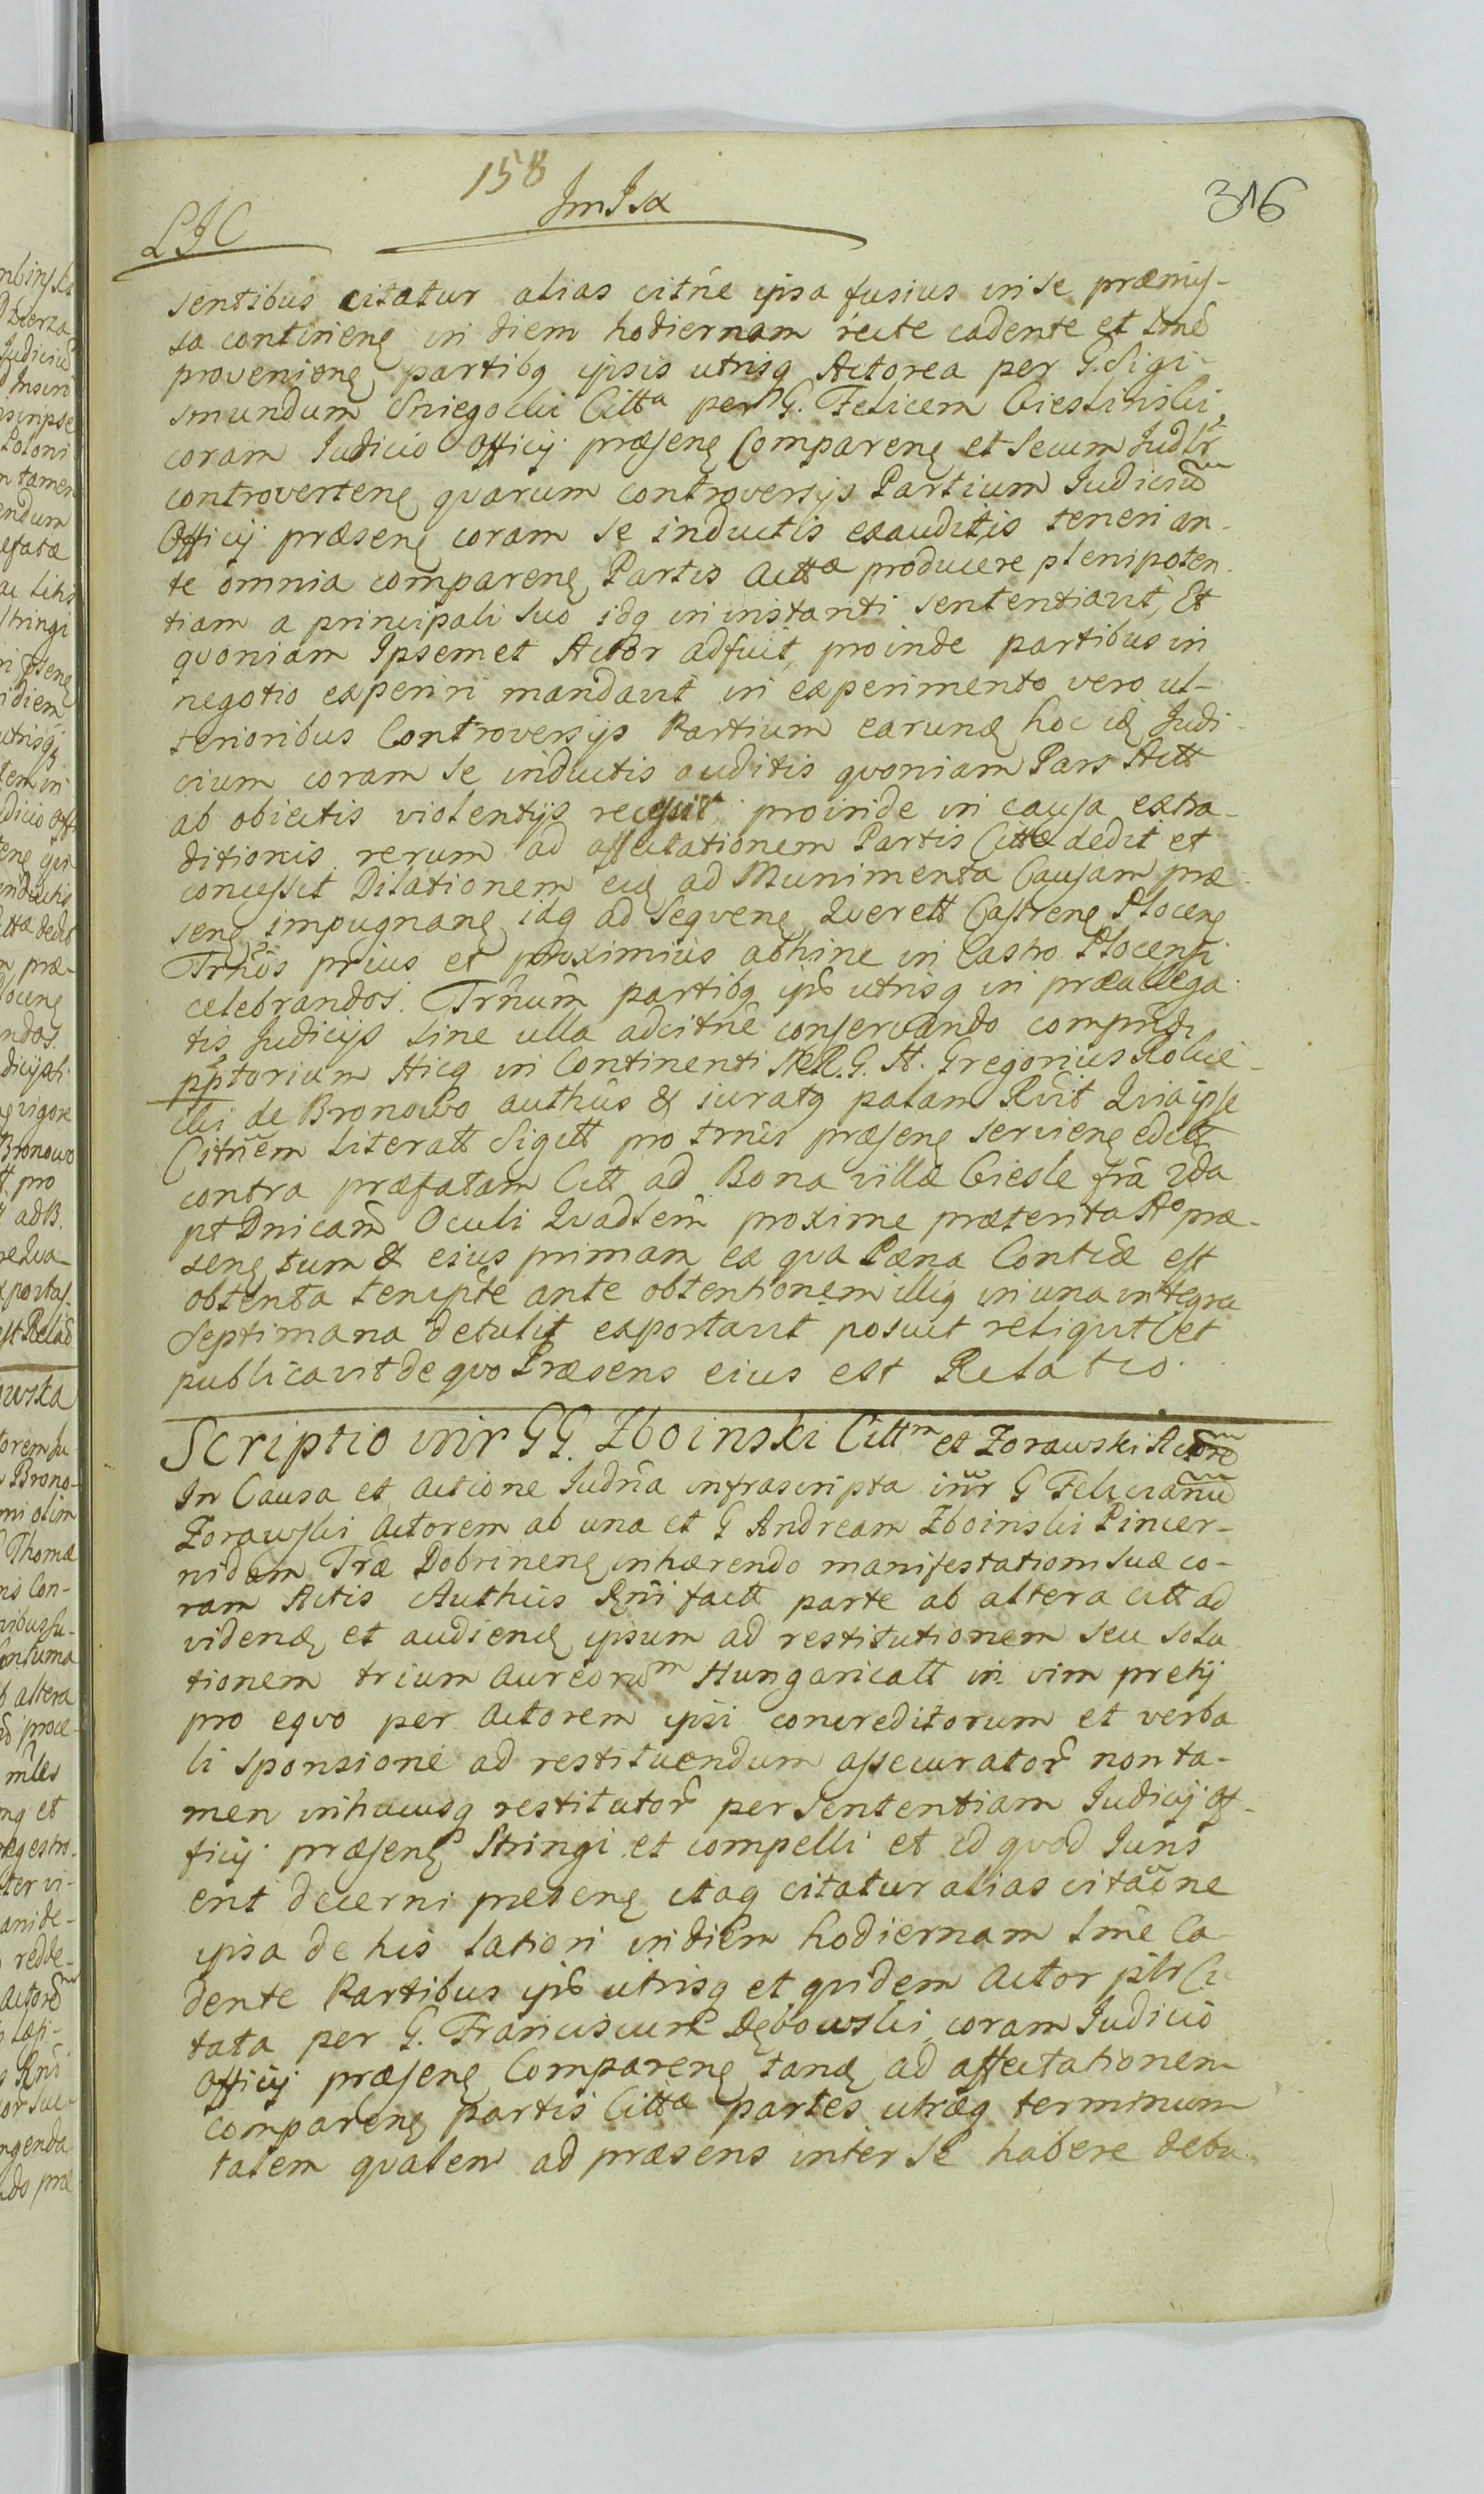 158
316
LIC
sentibus citatur alias citñe ipsa fusius in se præmis-
sa continenę in diem hodiernam recte cadente et tmẽ
provenienę partibq ipsis utrisq Actorea per G. Sigi-
smundum Sniegocki Citta per G. Felicem Ciesliński
coram Judicio Officij præsenę Comparenę et Secum Judlr
controvertenę quarum controversijs Partium Judiciũ
Officij præsenę coram se inductis exauditis teneri an-
te omnia comparenę Partis Actt̃æ producere plenipoten-
tiam a principali suo idq in instanti sententiavit, Et
quoniam Ipsemet Actor adfuit proinde partibus in
negotio experiri mandavit in experimento vero ul-
terioribus Controversijs Partium earundę hoc idę Judi-
cium coram se inductis auditis quoniam Pars Actt
ab obiectis violentijs recessit proinde in causa extra-
ditionis rerum ad affectationem Partis Cittæ dedit et
concessit Dilationem eidę ad Munimenta Causam præ
senę impugnanę idq ad Sequenę Querett Castrenę Plocenę
Trños prius et proximius abhinc in Castro Plocensi
celebrandos. Trñum partibq ipis utrisq in præallega-
tis Judicijs sine ulla adcitñe conservando comprñdi
pptorium Hicq in Continenti
de Bronowo authũs & iuratq palam Rvit Quia ipse
Citñem Literatt Sigitt pro trñis præsenę servienę editt
contra præfatam Citt ad Bona villæ Ciesle fra 2da
pt Dnicam Oculi Quadlem proxime præterita Ao præ-
senę tum & eius primam ex qua Pæna Contũæ est
obtenta tempte ante obtentionem illiq in una integra
Septimana detulit exportavit posuit reliquit et
publicavit de quo Præsens eius est Relatio.
Scriptio intr GG. Zboinski Cittm et Zorawski Actorẽ
In Causa et actione Judria infrascripta intr G Felicianũ
Zorawski Actorem ab una et G Andream Zboinski Pincer-
nidam Træ Dobrinenę inhærendo manifestationi suæ co-
ram Actis Authũs Rñi fact parte ab altera citt ad
videndę et audiendę ipsum ad restitutionem seu solu
tionem trium aureorũm Hungaricalt in vim pretij
pro equo per Actorem ipsi concreditorum et verba
li sponsione ad restituendum assecurator̃ non ta-
men inhucusq restitutor̃ per sententiam Judicij Of-
ficij præsenę Stringi et compelli et id quod Juris
erit decerni præsenę itaq citatur alias citãone
ipsa de his latiori in diem hodiernam tmẽ Ca
dente Partibus ipis utrisq et quidem Actor pltr Ci
tata per G. Franciscum Dębowski coram Judicio
Officij præsenę Comparenę tandę ad affectationem
comparenę partis Cittæ partes utræq terminum
talem qualem ad præsens inter se habere debu